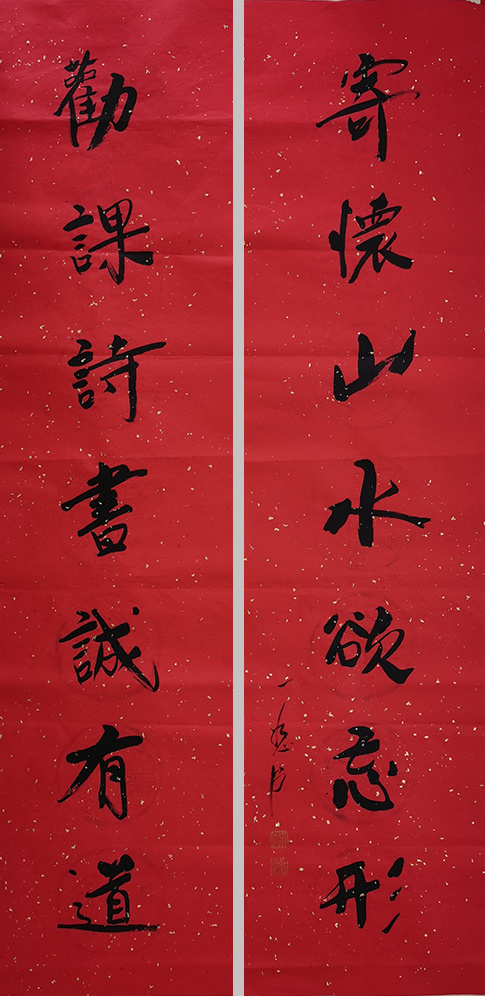 寄懷山水欲忘形
勸課詩書誠有道